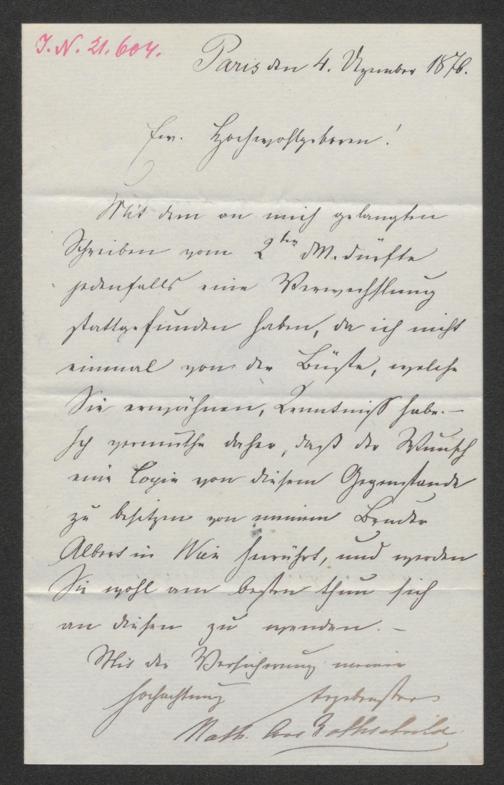 J. N. 21.604.
Paris den 4. Dezember 1876.
Ew. Hochwohlgeboren!
Mit dem an mich gelangten
Schreiben vom 2ten dM. dürfte
jedenfalls eine Verwechslung
stattgefunden haben, da ich nicht
einmal von der Büste, welche
Sie erwähnen, Kenntniß habe. –
Ich vermuthe daher, daß der Wunsch
eine Copie von diesem Gegenstande
zu besitzen von meinem Bruder
Albert in Wien herrührt, und werden
Sie wohl am besten thun sich
an diesen zu wenden. –
Mit der Versicherung meiner
Hochachtung ergebenster
Nath. Rothschild